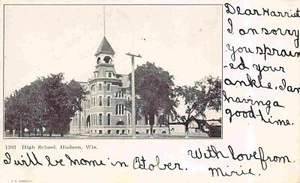 Dear Harriet
I am sorry
you sprain
-ed your
ankle, I am
having a
good time.
1201 High School, Hudson, Wis.
I will be home in Otober. With love from.
Mirie.